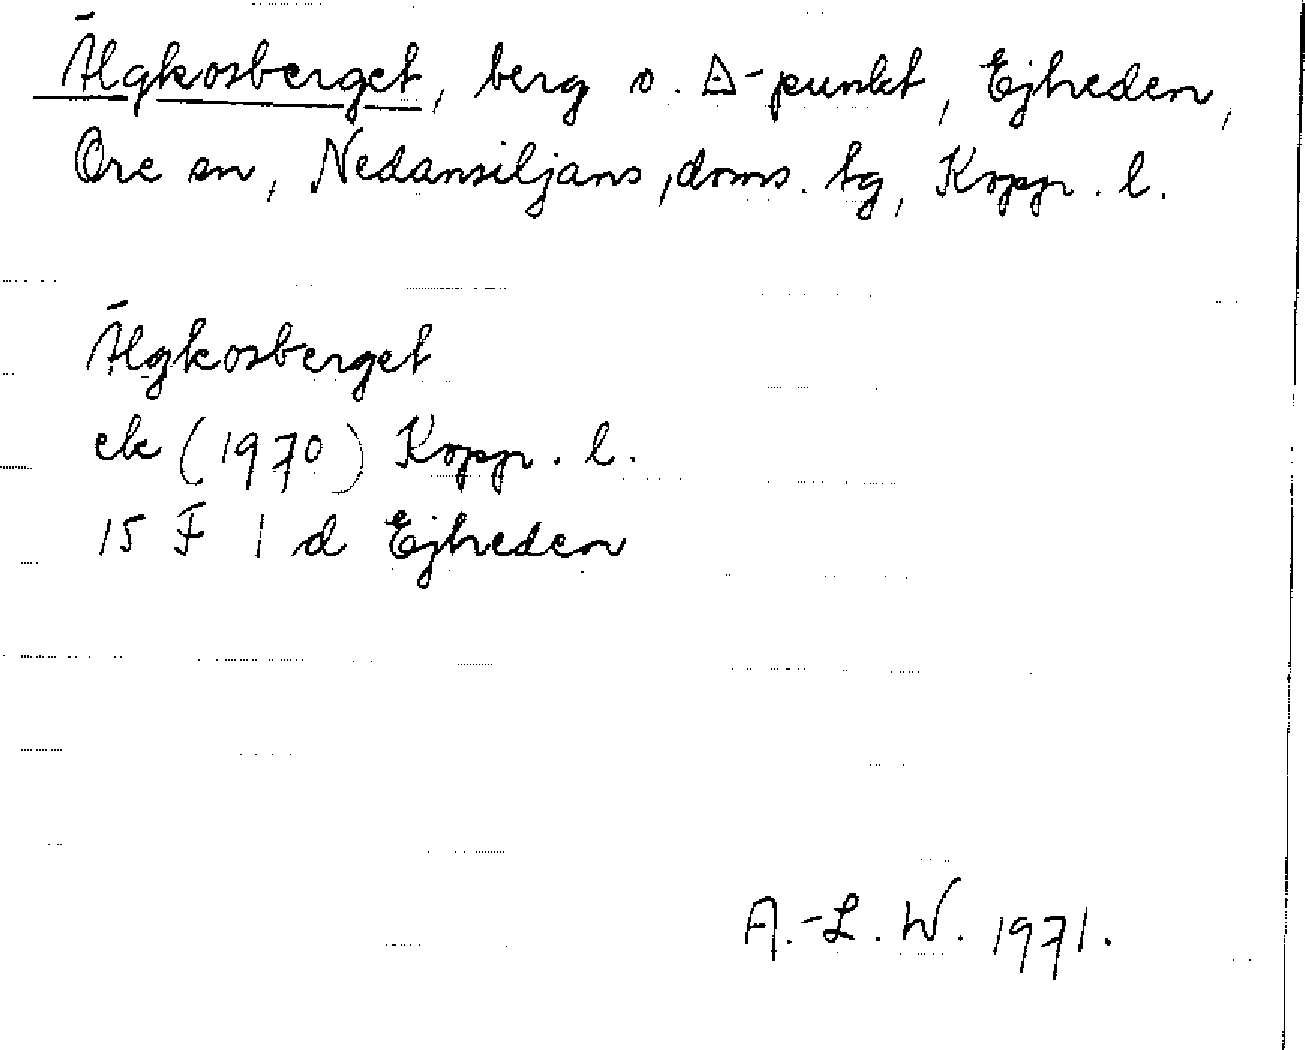 Älgkosberget, berg o. ∆-punkt, Ejheden,
Ore sn, Nedansiljans, doms. tg, Koppr. l.
Älgkosberget
ek (1970) Koppr. l.
15 F 1 d Ejheden
A.-L. W. 1971.